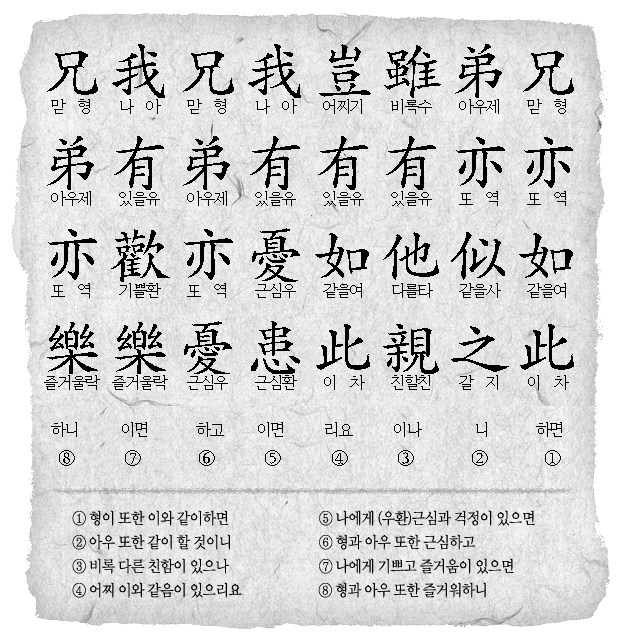 兄 맏 형 亦 또 역 如 같을여 此 이 차 하면 ①
弟 아우제 亦 또 역 似 같을사 之 갈 지 니 ②
雖 비록수 有 있을유 他 다를타 親 친할친 이나 ③
豈 어찌기 有 있을유 如 같을여 此 이 차 리요 ④
我 나 아 有 있을유 憂 근심우 患 근심환 이면 ⑤
兄 맏 형 弟 아우제 亦 또 역 憂 근심우 하고 ⑥
我 나 아 有 있을유 歡 기쁠환 樂 즐거울락 이면 ⑦
兄 맏 형 弟 아우제 亦 또 역 樂 즐거울락 하니 ⑧
① 형이 또한 이와 같이하면
② 아우 또한 같이 할 것이니
③ 비록 다른 친함이 있으나
④ 어찌 이와 같음이 있으리요
⑤ 나에게 (우환)근심과 걱정이 있으면
⑥ 형과 아우 또한 근심하고
⑦ 나에게 기쁘고 즐거움이 있으면
⑧ 형과 아우 또한 즐거워하니